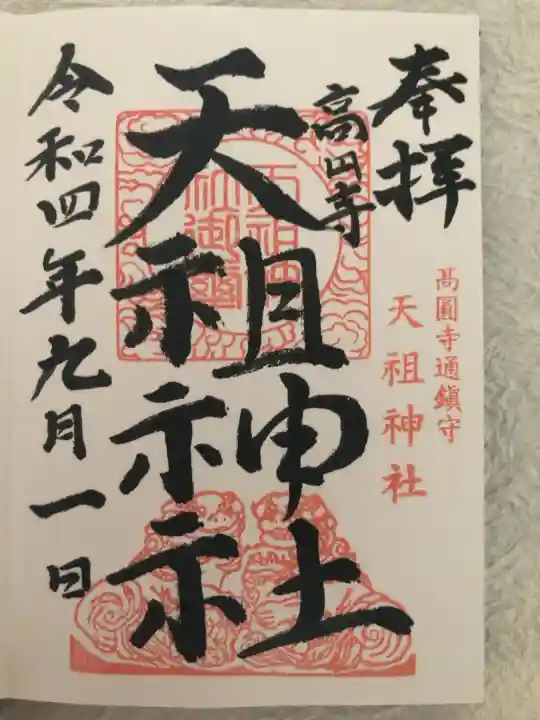 奉拝
高圓寺通鎮守
天祖神社
高円寺
天祖神社
令和四年九月一日